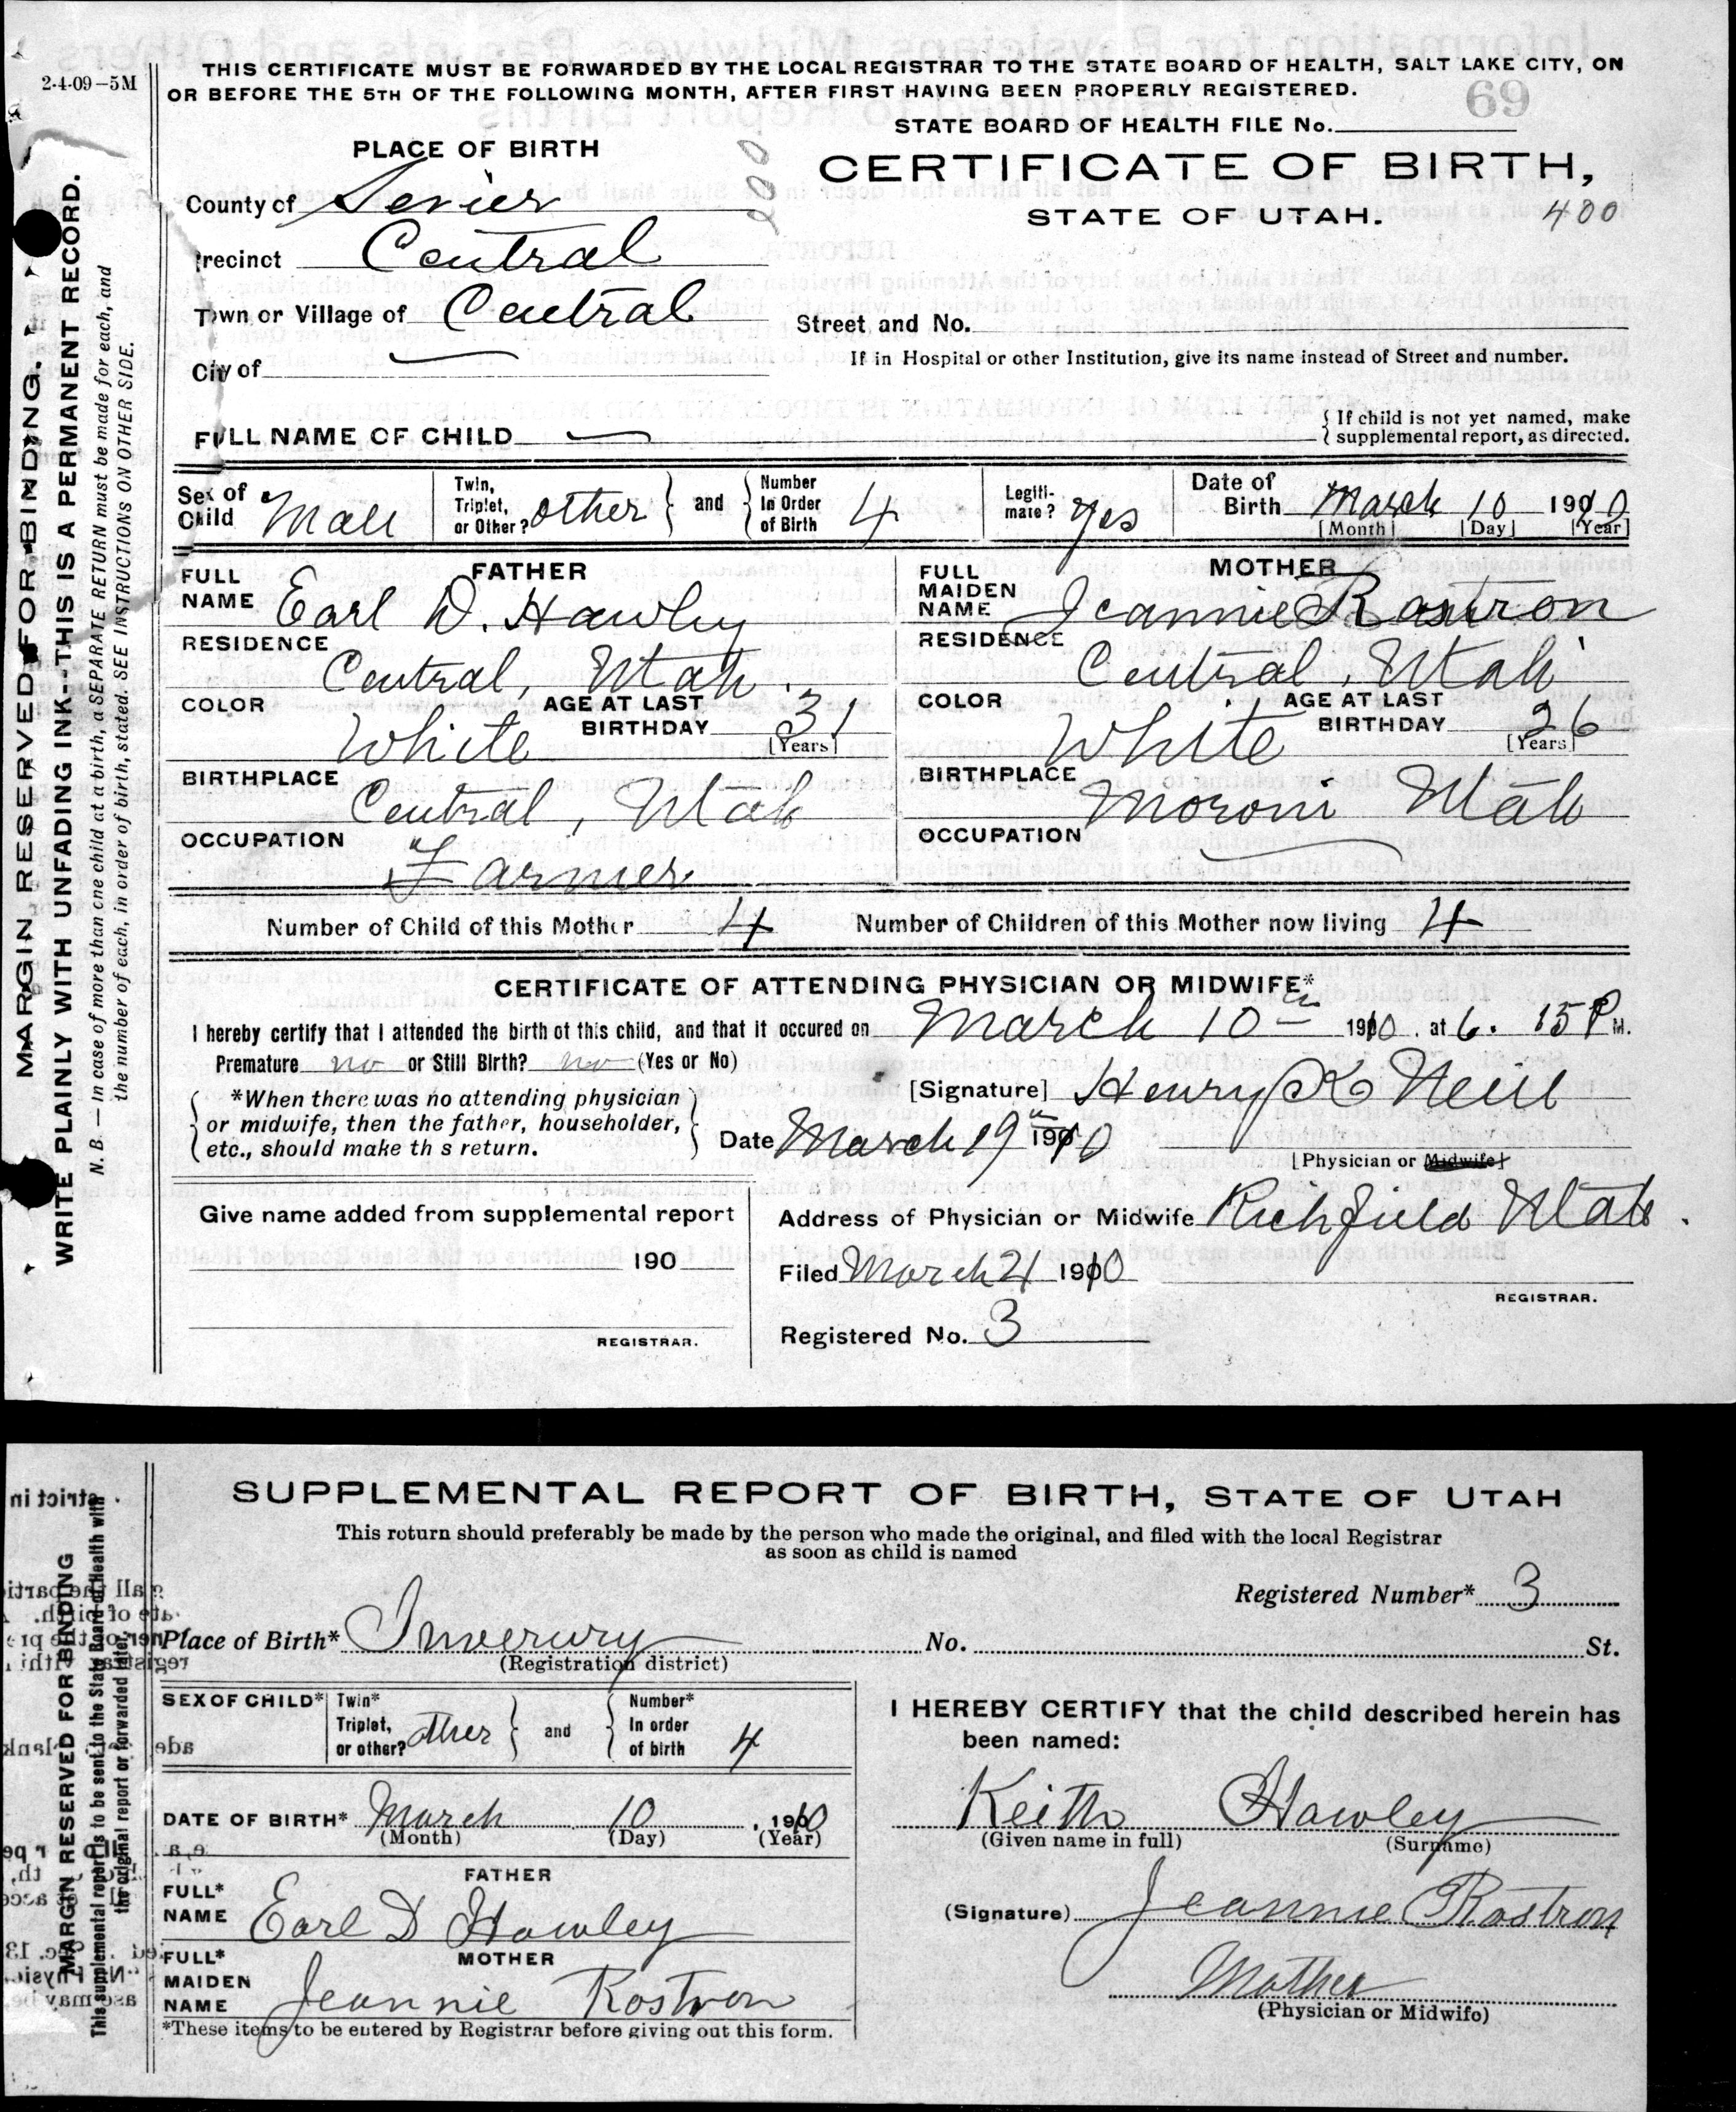 2-4-09—5M
THIS CERTIFICATE MUST BE FORWARDED BY THE LOCAL REGISTRAR TO THE STATE BOARD OF HEALTH, SALT LAKE CITY, ON
OR BEFORE THE 5TH OF THE FOLLOWING MONTH, AFTER FIRST HAVING BEEN PROPERLY REGISTERED.
69
STATE BOARD OF HEALTH FILE No.
PLACE OF BIRTH
CERTIFICATE OF BIRTH,
STATE OF UTAH.
400
County of Sevier
Precinct Central
Town or Village of Central
Street and No.
If in Hospital or other Institution, give its name instead of Street and number.
City of
FULL NAME OF CHILD —
{ If child is not yet named, make
supplemental report, as directed.
Sex of Child Male
Twin, Triplet, or Other? other } and { Number In Order of Birth 4
Legitimate? Yes
Date of Birth March 10 1910
[Month] [Day] [Year]
FATHER
FULL NAME Earl D. Hawley
RESIDENCE Central, Utah.
COLOR White AGE AT LAST BIRTHDAY 31 [Years]
BIRTHPLACE Central, Utah
OCCUPATION Farmer
MOTHER
FULL MAIDEN NAME Jeannie Rostron
RESIDENCE Central, Utah
COLOR White AGE AT LAST BIRTHDAY 26 [Years]
BIRTHPLACE Moroni Utah
OCCUPATION —
Number of Child of this Mother 4 Number of Children of this Mother now living 4
CERTIFICATE OF ATTENDING PHYSICIAN OR MIDWIFE*
I hereby certify that I attended the birth of this child, and that it occured on March 10th 1910. at 6.15 P M.
Premature no or Still Birth? no (Yes or No)
*When there was no attending physician
or midwife, then the father, householder,
etc., should make this return.
[Signature] Henry K Neill
Date March 19th 1910
[Physician or Midwife]
Give name added from supplemental report
190
REGISTRAR.
Address of Physician or Midwife Richfield Utah.
Filed March 21 1910
REGISTRAR.
Registered No. 3
MARGIN RESERVED FOR BINDING.
WRITE PLAINLY WITH UNFADING INK--THIS IS A PERMANENT RECORD.
N. B.—In case of more than one child at a birth, a SEPARATE RETURN must be made for each, and
the number of each, in order of birth, stated. SEE INSTRUCTIONS ON OTHER SIDE.
SUPPLEMENTAL REPORT OF BIRTH, STATE OF UTAH
This return should preferably be made by the person who made the original, and filed with the local Registrar
as soon as child is named
Registered Number* 3
Place of Birth* Inverury No. St.
(Registration district)
SEX OF CHILD*
Twin* Triplet, or other? other } and { Number* In order of birth 4
DATE OF BIRTH* March 10, 1910
(Month) (Day) (Year)
FATHER
FULL* NAME Earl D Hawley
MOTHER
FULL* MAIDEN NAME Jeannie Rostron
*These items to be entered by Registrar before giving out this form.
I HEREBY CERTIFY that the child described herein has
been named:
Keith Hawley
(Given name in full) (Surname)
(Signature) Jeannie Rostron
Mother
(Physician or Midwife)
MARGIN RESERVED FOR BINDING
This supplemental report is to be sent to the State Board of Health with
the original report or forwarded later.